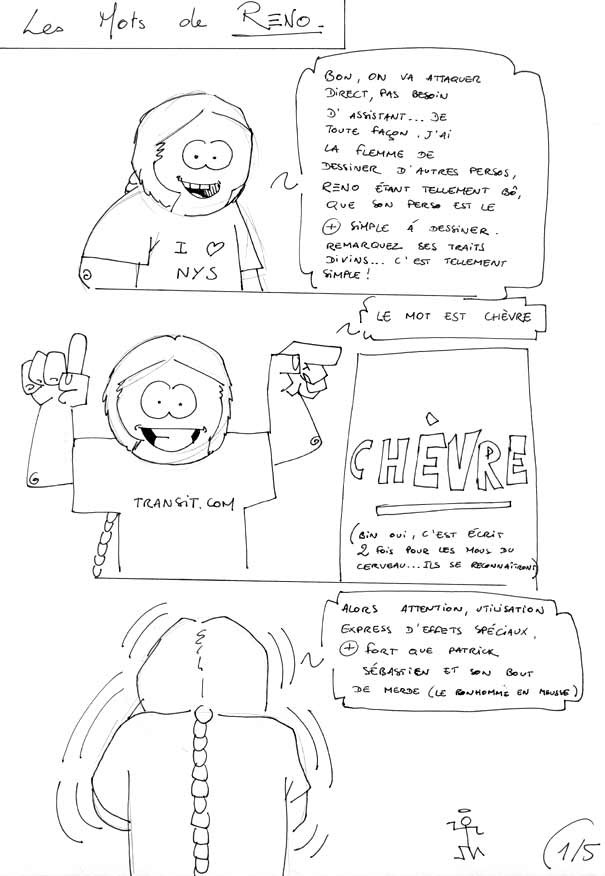 Les Mots de RENO.
BON, ON VA ATTAQUER
DIRECT, PAS BESOIN
D'ASSISTANT... DE
TOUTE FAÇON. J'AI
LA FLEMME DE
DESSINER D'AUTRES PERSOS,
RENO ÉTANT TELLEMENT BÔ,
QUE SON PERSO EST LE
+ SIMPLE À DESSINER.
REMARQUEZ SES TRAITS
DIVINS... C'EST TELLEMENT
SIMPLE !
I ♡
NYS
LE MOT EST CHÈVRE
TRANSIT.COM
CHÈVRE
(BIN OUI, C'EST ÉCRIT
2 FOIS POUR LES MOUS DU
CERVEAU... ILS SE RECONNAÎTRONT)
ALORS ATTENTION, UTILISATION
EXPRESS D'EFFETS SPÉCIAUX.
+ FORT QUE PATRICK
SÉBASTIEN ET SON BOUT
DE MERDE (LE BONHOMME EN MOUSSE)
1/5